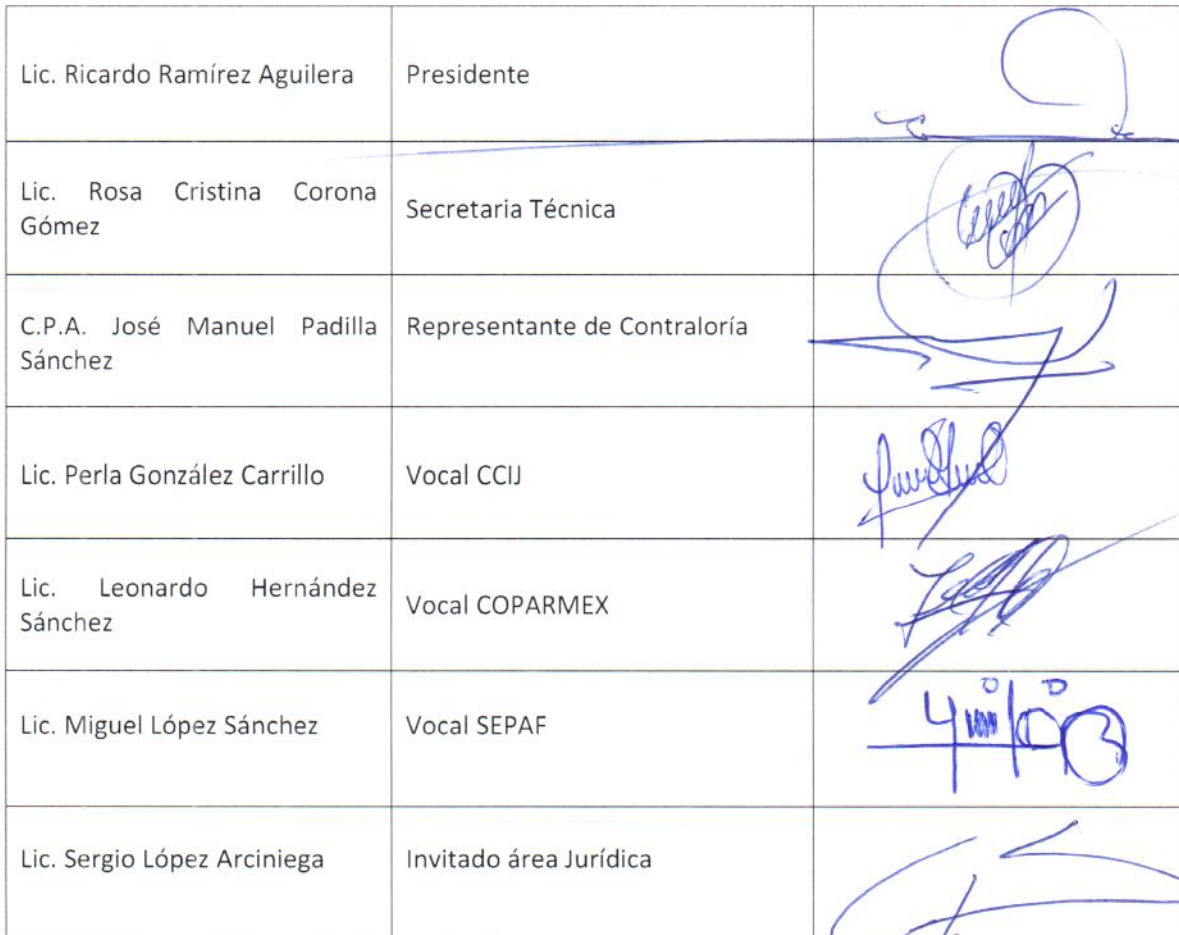 Lic. Ricardo Ramírez Aguilera
Presidente
Lic. Rosa Cristina Corona
Gómez
Secretaria Técnica
C.P.A. José Manuel Padilla
Sánchez
Representante de Contraloría
Lic. Perla González Carrillo
Vocal CCIJ
Lic. Leonardo Hernández
Sánchez
Vocal COPARMEX
Lic. Miguel López Sánchez
Vocal SEPAF
Lic. Sergio López Arciniega
Invitado área Jurídica